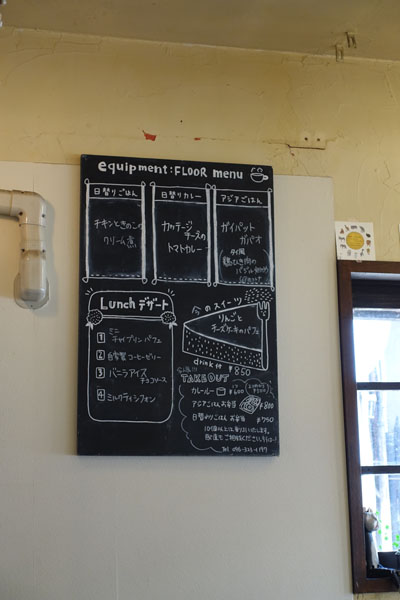 equipment:FLOOR menu
日替りごはん
チキンときのこの
クリーム煮
日替りカレー
カッテージ
チーズの
トマトカレー
アジアごはん
ガイパット
ガパオ
タイ風
鶏ひき肉の
Lunch デザート
1 ミニ
チャイプリンパフェ
2 自家製コーヒーゼリー
3 バニラアイス
チョコソース
4 ミルクティシフォン
今のスイーツ
りんごと
チーズケーキのパフェ
drink付 ¥850
TAKE OUT
カレールー
¥600
アジアごはんお弁当 ¥800
日替りごはんお弁当 ¥750